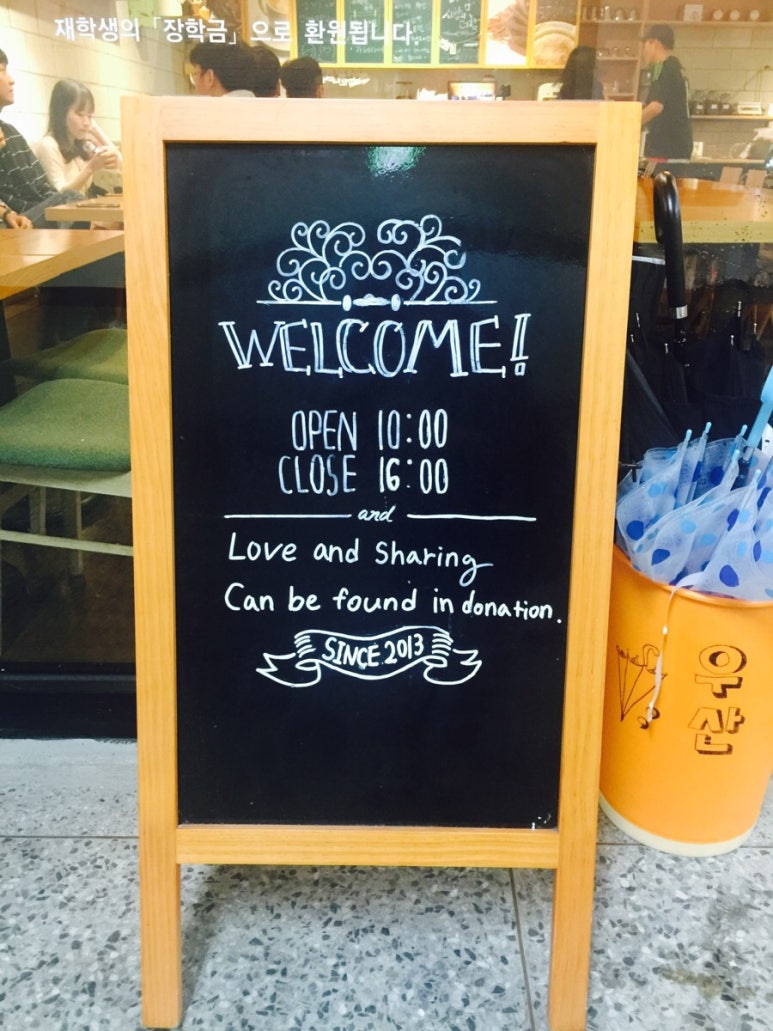 재학생의 「장학금」 으로 환원됩니다.
WELCOME!
OPEN 10:00
CLOSE 16:00
and
Love and Sharing
Can be found in donation.
SINCE.2013
우산